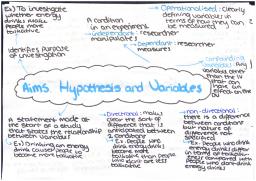 Ex) To investigate
whether energy
drinks make
people more
talkative
identifies purpose
of investigation
A condition
in an experiment
independent: researcher
manipulates
Dependant: researcher
measures
Operationalised: Clearly
defining variables in
terms of how they can
be measured
Confounding
variable: Any
variable other
than the IV
that can
have an
effect on the
DV
Aims, Hypothesis and Variables
A statement made at
the start of a study
that states the relationship
between variables
Ex) Drinking an energy
drink causes people to
become more talkative
Directional: makes
clear the sort of
difference that is
anticipated between
2 conditions
Ex. People who
drink
become more
talkative than people
who
non-directional:
there is a difference
between conditions
but nature of
difference not
specified
Ex. People who drink
energy drinks differ
in terms of
compared with
people who don't drink
energy drinks